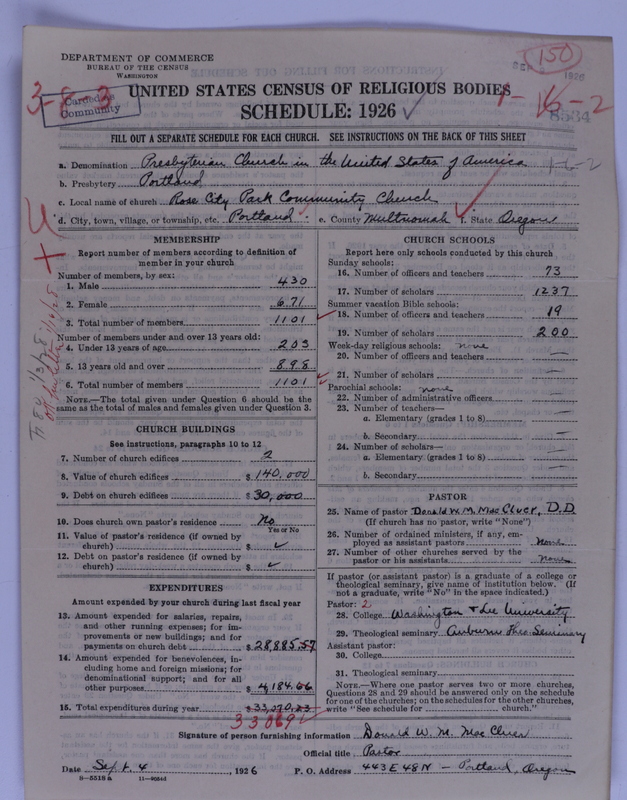 DEPARTMENT OF COMMERCE
BUREAU OF THE CENSUS
WASHINGTON
150
1926
3-8-3
Carded
Community
UNITED STATES CENSUS OF RELIGIOUS BODIES
SCHEDULE: 1926
1-16-2
8534
FILL OUT A SEPARATE SCHEDULE FOR EACH CHURCH. SEE INSTRUCTIONS ON THE BACK OF THIS SHEET
a. Denomination Presbyterian Church in the United States of America 1-6-2
b. Presbytery Portland
c. Local name of church Rose City Park Community Church
d. City, town, village, or township, etc. Portland e. County Multnomah f. State Oregon
MEMBERSHIP
Report number of members according to definition of
member in your church
Number of members, by sex:
1. Male 430
2. Female 671
3. Total number of members 1101
Number of members under and over 13 years old:
4. Under 13 years of age 203
5. 13 years old and over 898
6. Total number of members 1101
NOTE.—The total given under Question 6 should be the
same as the total of males and females given under Question 3.
CHURCH BUILDINGS
See instructions, paragraphs 10 to 12
7. Number of church edifices 2
8. Value of church edifices $ 140,000
9. Debt on church edifices $ 30,000
10. Does church own pastor's residence No
Yes or No
11. Value of pastor's residence (if owned by
church) $ ✓
12. Debt on pastor's residence (if owned by
church) $ ✓
EXPENDITURES
Amount expended by your church during last fiscal year
13. Amount expended for salaries, repairs,
and other running expenses; for im-
provements or new buildings; and for
payments on church debt $ 28,885.57
14. Amount expended for benevolences, in-
cluding home and foreign missions; for
denominational support; and for all
other purposes $ 4,184.66
15. Total expenditures during year $ 33,070.23
33069
CHURCH SCHOOLS
Report here only schools conducted by this church
Sunday schools:
16. Number of officers and teachers 73
17. Number of scholars 1237
Summer vacation Bible schools:
18. Number of officers and teachers 19
19. Number of scholars 200
Week-day religious schools: none
20. Number of officers and teachers —
21. Number of scholars —
Parochial schools: none
22. Number of administrative officers —
23. Number of teachers—
a. Elementary (grades 1 to 8) —
b. Secondary —
24. Number of scholars—
a. Elementary (grades 1 to 8) —
b. Secondary —
PASTOR
25. Name of pastor Donald W. M. MacCluer, D.D
(If church has no pastor, write "None")
26. Number of ordained ministers, if any, em-
ployed as assistant pastors None
27. Number of other churches served by the
pastor or his assistants none
If pastor (or assistant pastor) is a graduate of a college or
theological seminary, give name of institution below. (If
not a graduate, write "No" in the space indicated.)
Pastor: 2
28. College Washington & Lee University
29. Theological seminary Auburn Theo. Seminary
Assistant pastor:
30. College
31. Theological seminary
NOTE.—Where one pastor serves two or more churches,
Questions 28 and 29 should be answered only on the schedule
for one of the churches; on the schedules for the other churches,
write "See schedule for church."
Signature of person furnishing information Donald W. M. MacCluer
Official title Pastor
Date Sept. 4, 1926 P. O. Address 443 E 48 N — Portland, Oregon